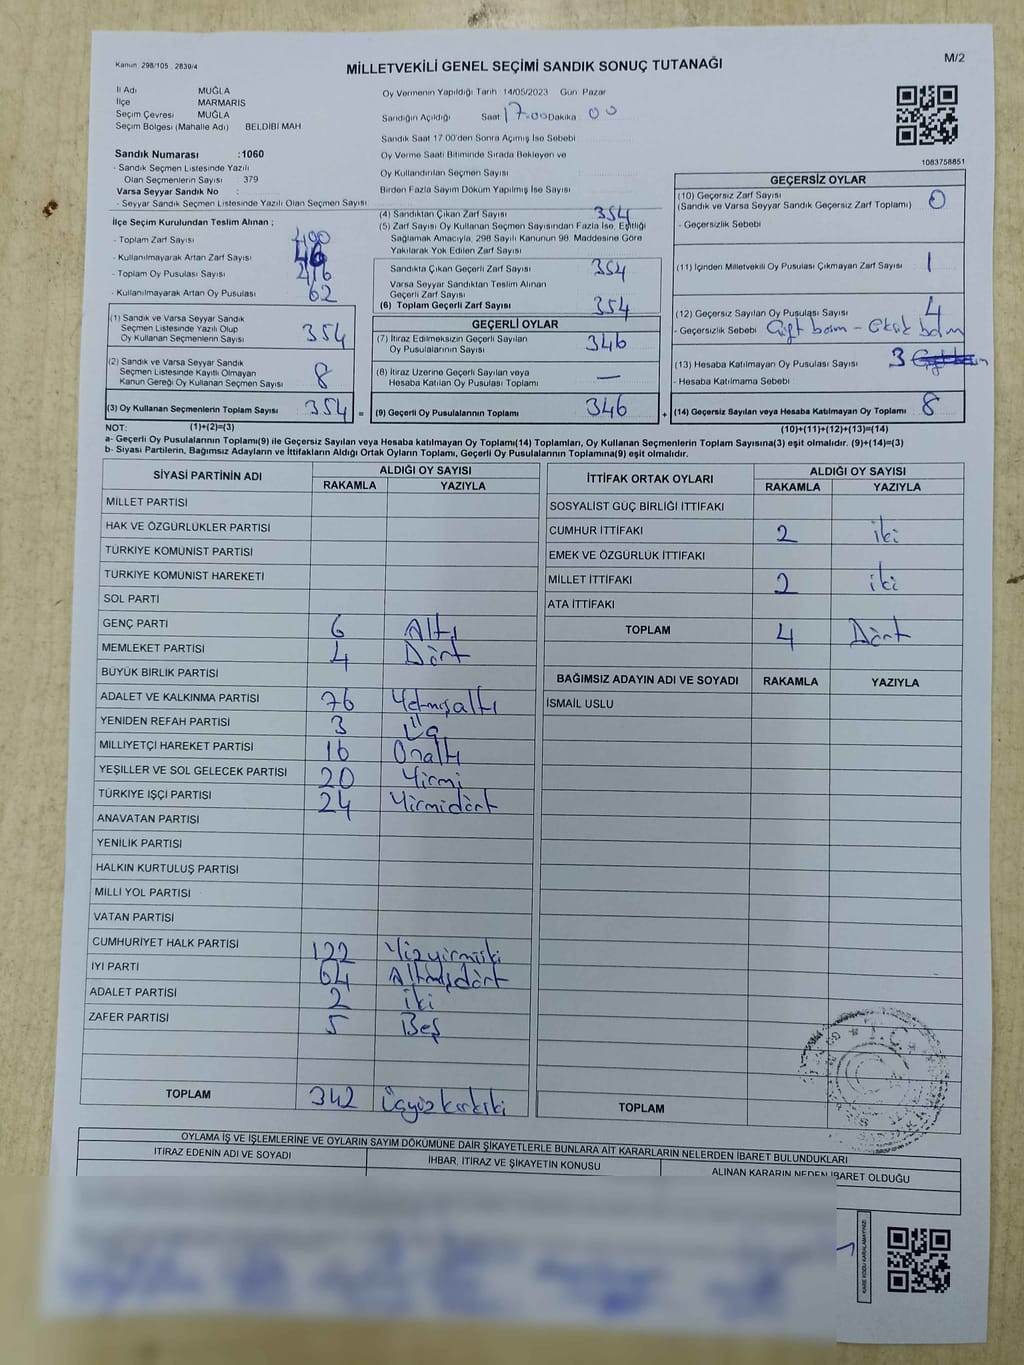 Kanun. 298/105 . 2839/4
M/2
MİLLETVEKİLİ GENEL SEÇİMİ SANDIK SONUÇ TUTANAĞI
İl Adı MUĞLA
İlçe MARMARİS
Seçim Çevresi MUĞLA
Seçim Bölgesi (Mahalle Adı) BELDİBİ MAH.
Sandık Numarası :1060
- Sandık Seçmen Listesinde Yazılı
Olan Seçmenlerin Sayısı 379
Varsa Seyyar Sandık No :
- Seyyar Sandık Seçmen Listesinde Yazılı Olan Seçmen Sayısı
Oy Vermenin Yapıldığı Tarih 14/05/2023 Gün Pazar
Sandığın Açıldığı Saat 17.00 Dakika 00
Sandık Saat 17.00'den Sonra Açılmış İse Sebebi
Oy Verme Saati Bitiminde Sırada Bekleyen ve
Oy Kullandırılan Seçmen Sayısı
Birden Fazla Sayım Döküm Yapılmış İse Sayısı
1083758851
İlçe Seçim Kurulundan Teslim Alınan ;
- Toplam Zarf Sayısı 400
- Kullanılmayarak Artan Zarf Sayısı 46
- Toplam Oy Pusulası Sayısı 416
- Kullanılmayarak Artan Oy Pusulası 62
(1) Sandık ve Varsa Seyyar Sandık
Seçmen Listesinde Yazılı Olup
Oy Kullanan Seçmenlerin Sayısı 354
(2) Sandık ve Varsa Seyyar Sandık
Seçmen Listesinde Kayıtlı Olmayan
Kanun Gereği Oy Kullanan Seçmen Sayısı
(3) Oy Kullanan Seçmenlerin Toplam Sayısı 354 =
(4) Sandıktan Çıkan Zarf Sayısı 354
(5) Zarf Sayısı Oy Kullanan Seçmen Sayısından Fazla İse, Eşitliği
Sağlamak Amacıyla, 298 Sayılı Kanunun 98. Maddesine Göre
Yakılarak Yok Edilen Zarf Sayısı
Sandıkta Çıkan Geçerli Zarf Sayısı 354
Varsa Seyyar Sandıktan Teslim Alınan
Geçerli Zarf Sayısı
(6) Toplam Geçerli Zarf Sayısı 354
GEÇERLİ OYLAR
(7) İtiraz Edilmeksizin Geçerli Sayılan
Oy Pusulalarının Sayısı 346
(8) İtiraz Üzerine Geçerli Sayılan veya
Hesaba Katılan Oy Pusulası Toplamı —
(9) Geçerli Oy Pusulalarının Toplamı 346 +
GEÇERSİZ OYLAR
(10) Geçersiz Zarf Sayısı
(Sandık ve Varsa Seyyar Sandık Geçersiz Zarf Toplamı) 0
- Geçersizlik Sebebi
(11) İçinden Milletvekili Oy Pusulası Çıkmayan Zarf Sayısı 1
(12) Geçersiz Sayılan Oy Pusulası Sayısı 4
- Geçersizlik Sebebi Çift basım -
(13) Hesaba Katılmayan Oy Pusulası Sayısı 3
- Hesaba Katılmama Sebebi
(14) Geçersiz Sayılan veya Hesaba Katılmayan Oy Toplamı 8
NOT: (1)+(2)=(3)
(10)+(11)+(12)+(13)=(14)
a- Geçerli Oy Pusulalarının Toplamı(9) ile Geçersiz Sayılan veya Hesaba katılmayan Oy Toplamı(14) Toplamları, Oy Kullanan Seçmenlerin Toplam Sayısına(3) eşit olmalıdır. (9)+(14)=(3)
b- Siyasi Partilerin, Bağımsız Adayların ve İttifakların Aldığı Oyların Toplamı, Geçerli Oy Pusulalarının Toplamına(9) eşit olmalıdır.
SİYASİ PARTİNİN ADI ALDIĞI OY SAYISI
RAKAMLA YAZIYLA
MİLLET PARTİSİ
HAK VE ÖZGÜRLÜKLER PARTİSİ
TÜRKİYE KOMÜNİST PARTİSİ
TÜRKİYE KOMÜNİST HAREKETİ
SOL PARTİ
GENÇ PARTİ 6 Altı
MEMLEKET PARTİSİ 4 Dört
BÜYÜK BİRLİK PARTİSİ
ADALET VE KALKINMA PARTİSİ 76 Yetmişaltı
YENİDEN REFAH PARTİSİ 3 Üç
MİLLİYETÇİ HAREKET PARTİSİ 16 Onaltı
YEŞİLLER VE SOL GELECEK PARTİSİ 20 Yirmi
TÜRKİYE İŞÇİ PARTİSİ 24 Yirmidört
ANAVATAN PARTİSİ
YENİLİK PARTİSİ
HALKIN KURTULUŞ PARTİSİ
MİLLİ YOL PARTİSİ
VATAN PARTİSİ
CUMHURİYET HALK PARTİSİ 122 Yüzyirmiiki
İYİ PARTİ 64 Altmışdört
ADALET PARTİSİ 2 iki
ZAFER PARTİSİ 5 Beş
TOPLAM 342 Üçyüzkırkiki
İTTİFAK ORTAK OYLARI ALDIĞI OY SAYISI
RAKAMLA YAZIYLA
SOSYALİST GÜÇ BİRLİĞİ İTTİFAKI
CUMHUR İTTİFAKI 2 iki
EMEK VE ÖZGÜRLÜK İTTİFAKI
MİLLET İTTİFAKI 2 iki
ATA İTTİFAKI
TOPLAM 4 Dört
BAĞIMSIZ ADAYIN ADI VE SOYADI RAKAMLA YAZIYLA
İSMAİL USLU
TOPLAM
OYLAMA İŞ VE İŞLEMLERİNE VE OYLARIN SAYIM DÖKÜMÜNE DAİR ŞİKAYETLERLE BUNLARA AİT KARARLARIN NELERDEN İBARET BULUNDUKLARI
İTİRAZ EDENİN ADI VE SOYADI
İHBAR, İTİRAZ VE ŞİKAYETİN KONUSU
ALINAN KARARIN NEDEN İBARET OLDUĞU
KARE KODU KARALAMAYINIZ!